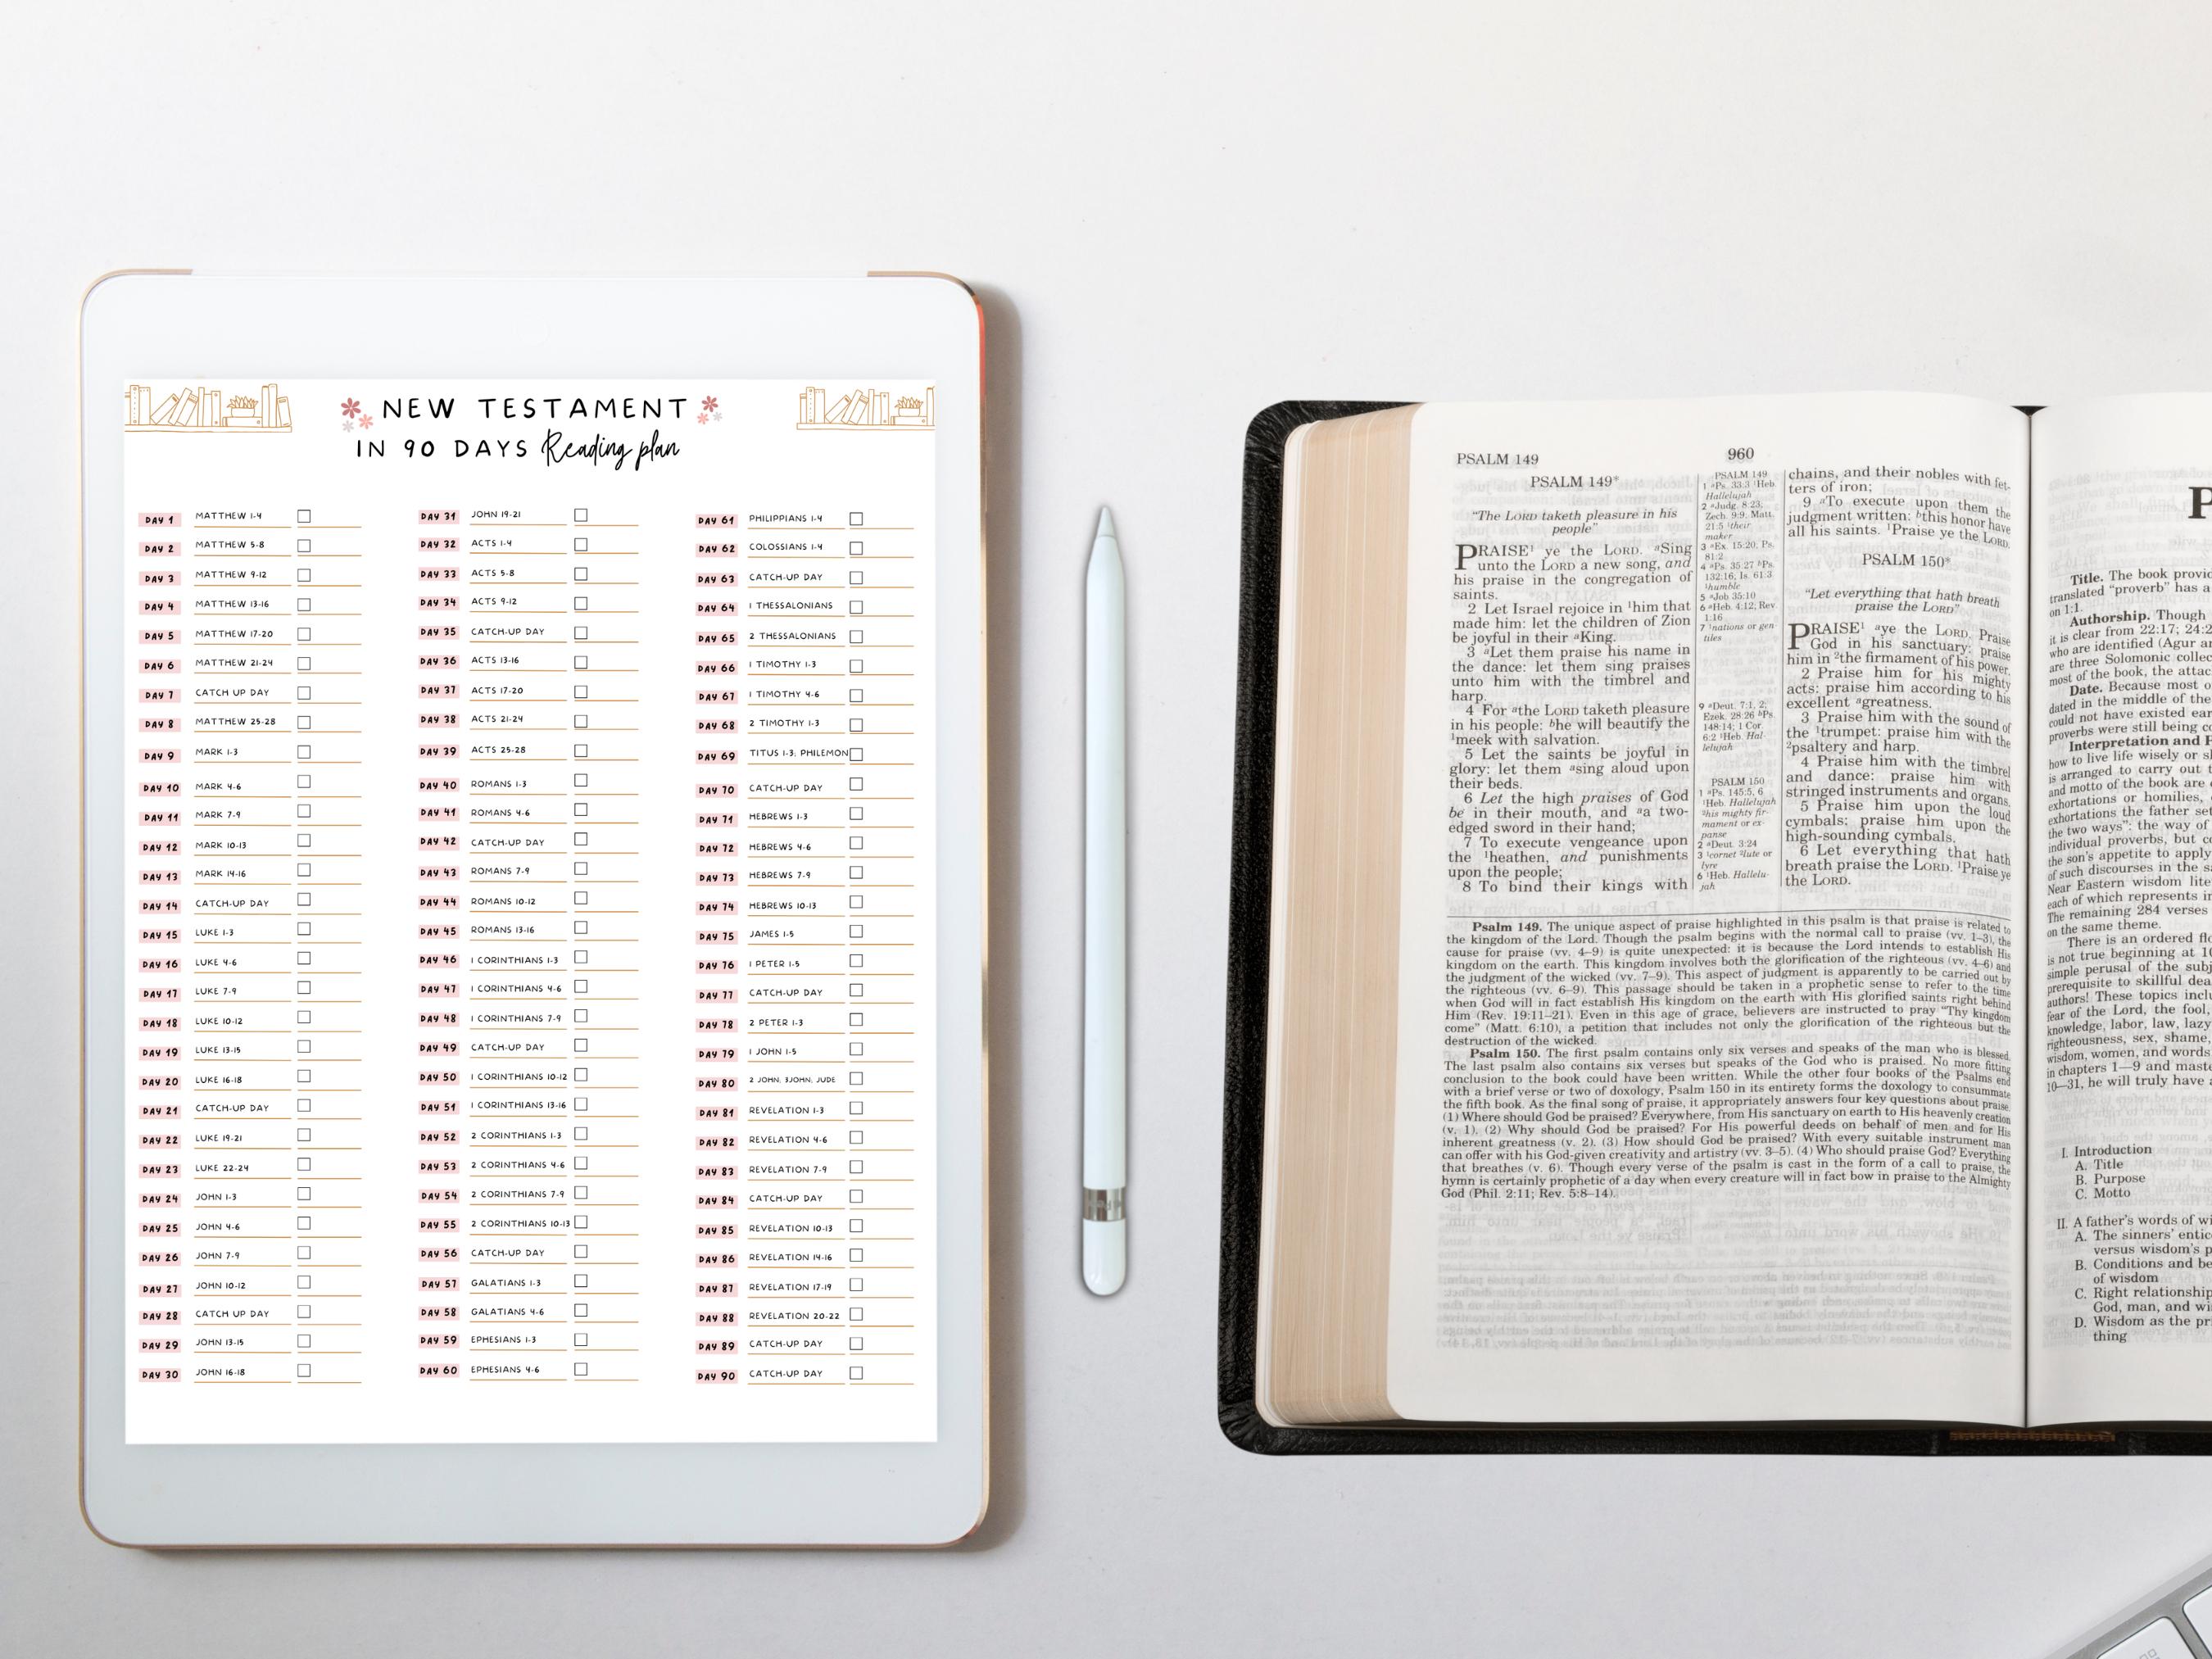 NEW TESTAMENT
IN 90 DAYS Reading plan
DAY 1 MATTHEW 1-4
DAY 2 MATTHEW 5-8
DAY 3 MATTHEW 9-12
DAY 4 MATTHEW 13-16
DAY 5 MATTHEW 17-20
DAY 6 MATTHEW 21-24
DAY 7 CATCH UP DAY
DAY 8 MATTHEW 25-28
DAY 9 MARK 1-3
DAY 10 MARK 4-6
DAY 11 MARK 7-9
DAY 12 MARK 10-13
DAY 13 MARK 14-16
DAY 14 CATCH-UP DAY
DAY 15 LUKE 1-3
DAY 16 LUKE 4-6
DAY 17 LUKE 7-9
DAY 18 LUKE 10-12
DAY 19 LUKE 13-15
DAY 20 LUKE 16-18
DAY 21 CATCH-UP DAY
DAY 22 LUKE 19-21
DAY 23 LUKE 22-24
DAY 24 JOHN 1-3
DAY 25 JOHN 4-6
DAY 26 JOHN 7-9
DAY 27 JOHN 10-12
DAY 28 CATCH UP DAY
DAY 29 JOHN 13-15
DAY 30 JOHN 16-18
DAY 31 JOHN 19-21
DAY 32 ACTS 1-4
DAY 33 ACTS 5-8
DAY 34 ACTS 9-12
DAY 35 CATCH-UP DAY
DAY 36 ACTS 13-16
DAY 37 ACTS 17-20
DAY 38 ACTS 21-24
DAY 39 ACTS 25-28
DAY 40 ROMANS 1-3
DAY 41 ROMANS 4-6
DAY 42 CATCH-UP DAY
DAY 43 ROMANS 7-9
DAY 44 ROMANS 10-12
DAY 45 ROMANS 13-16
DAY 46 1 CORINTHIANS 1-3
DAY 47 1 CORINTHIANS 4-6
DAY 48 1 CORINTHIANS 7-9
DAY 49 CATCH-UP DAY
DAY 50 1 CORINTHIANS 10-12
DAY 51 1 CORINTHIANS 13-16
DAY 52 2 CORINTHIANS 1-3
DAY 53 2 CORINTHIANS 4-6
DAY 54 2 CORINTHIANS 7-9
DAY 55 2 CORINTHIANS 10-13
DAY 56 CATCH-UP DAY
DAY 57 GALATIANS 1-3
DAY 58 GALATIANS 4-6
DAY 59 EPHESIANS 1-3
DAY 60 EPHESIANS 4-6
DAY 61 PHILIPPIANS 1-4
DAY 62 COLOSSIANS 1-4
DAY 63 CATCH-UP DAY
DAY 64 1 THESSALONIANS
DAY 65 2 THESSALONIANS
DAY 66 1 TIMOTHY 1-3
DAY 67 1 TIMOTHY 4-6
DAY 68 2 TIMOTHY 1-3
DAY 69 TITUS 1-3; PHILEMON
DAY 70 CATCH-UP DAY
DAY 71 HEBREWS 1-3
DAY 72 HEBREWS 4-6
DAY 73 HEBREWS 7-9
DAY 74 HEBREWS 10-13
DAY 75 JAMES 1-5
DAY 76 1 PETER 1-5
DAY 77 CATCH-UP DAY
DAY 78 2 PETER 1-3
DAY 79 1 JOHN 1-5
DAY 80 2 JOHN, 3JOHN, JUDE
DAY 81 REVELATION 1-3
DAY 82 REVELATION 4-6
DAY 83 REVELATION 7-9
DAY 84 CATCH-UP DAY
DAY 85 REVELATION 10-13
DAY 86 REVELATION 14-16
DAY 87 REVELATION 17-19
DAY 88 REVELATION 20-22
DAY 89 CATCH-UP DAY
DAY 90 CATCH-UP DAY
PSALM 149
960
PSALM 149*
“The LORD taketh pleasure in his
people”
PRAISE¹ ye the LORD. ᵃSing
unto the LORD a new song, and
his praise in the congregation of
saints.
2 Let Israel rejoice in ¹him that
made him: let the children of Zion
be joyful in their ᵃKing.
3 ᵃLet them praise his name in
the dance: let them sing praises
unto him with the timbrel and
harp.
4 For ᵃthe LORD taketh pleasure
in his people: ᵇhe will beautify the
¹meek with salvation.
5 Let the saints be joyful in
glory: let them ᵃsing aloud upon
their beds.
6 Let the high praises of God
be in their mouth, and ᵃa two-
edged sword in their hand;
7 To execute vengeance upon
the ¹heathen, and punishments
upon the people;
8 To bind their kings with
PSALM 149
1 ᵃPs. 33:3 ¹Heb.
Hallelujah
2 ᵃJudg. 8:23;
Zech. 9:9; Matt.
21:5 ¹their
maker
3 ᵃEx. 15:20; Ps.
81:2
4 ᵃPs. 35:27 ᵇPs.
132:16; Is. 61:3
¹humble
5 ᵃJob 35:10
6 ᵃHeb. 4:12; Rev.
1:16
7 ¹nations or gen
tiles
9 ᵃDeut. 7:1, 2;
Ezek. 28:26 ᵇPs.
148:14; 1 Cor.
6:2 ¹Heb. Hal-
lelujah
PSALM 150
1 ᵃPs. 145:5, 6
¹Heb. Hallelujah
²his mighty fir-
mament or ex-
panse
2 ᵃDeut. 3:24
3 ¹cornet ²lute or
lyre
6 ¹Heb. Hallelu-
jah
chains, and their nobles with fet-
ters of iron;
9 ᵃTo execute upon them the
judgment written: ᵇthis honor have
all his saints. ¹Praise ye the LORD.
PSALM 150*
“Let everything that hath breath
praise the LORD”
PRAISE¹ ᵃye the LORD. Praise
God in his sanctuary: praise
him in ²the firmament of his power.
2 Praise him for his mighty
acts: praise him according to his
excellent ᵃgreatness.
3 Praise him with the sound of
the ¹trumpet: praise him with the
²psaltery and harp.
4 Praise him with the timbrel
and dance: praise him with
stringed instruments and organs.
5 Praise him upon the loud
cymbals: praise him upon the
high-sounding cymbals.
6 Let everything that hath
breath praise the LORD. ¹Praise ye
the LORD.
Psalm 149. The unique aspect of praise highlighted in this psalm is that praise is related to
the kingdom of the Lord. Though the psalm begins with the normal call to praise (vv. 1–3), the
cause for praise (vv. 4–9) is quite unexpected: it is because the Lord intends to establish His
kingdom on the earth. This kingdom involves both the glorification of the righteous (vv. 4–6) and
the judgment of the wicked (vv. 7–9). This aspect of judgment is apparently to be carried out by
the righteous (vv. 6–9). This passage should be taken in a prophetic sense to refer to the time
when God will in fact establish His kingdom on the earth with His glorified saints right behind
Him (Rev. 19:11–21). Even in this age of grace, believers are instructed to pray “Thy kingdom
come” (Matt. 6:10), a petition that includes not only the glorification of the righteous but the
destruction of the wicked.
Psalm 150. The first psalm contains only six verses and speaks of the man who is blessed.
The last psalm also contains six verses but speaks of the God who is praised. No more fitting
conclusion to the book could have been written. While the other four books of the Psalms end
with a brief verse or two of doxology, Psalm 150 in its entirety forms the doxology to consummate
the fifth book. As the final song of praise, it appropriately answers four key questions about praise.
(1) Where should God be praised? Everywhere, from His sanctuary on earth to His heavenly creation
(v. 1). (2) Why should God be praised? For His powerful deeds on behalf of men and for His
inherent greatness (v. 2). (3) How should God be praised? With every suitable instrument man
can offer with his God-given creativity and artistry (vv. 3–5). (4) Who should praise God? Everything
that breathes (v. 6). Though every verse of the psalm is cast in the form of a call to praise, the
hymn is certainly prophetic of a day when every creature will in fact bow in praise to the Almighty
God (Phil. 2:11; Rev. 5:8–14).
P
Title. The book provid
translated “proverb” has a
on 1:1.
Authorship. Though
it is clear from 22:17; 24:2
who are identified (Agur an
are three Solomonic collec
most of the book, the attac
Date. Because most o
dated in the middle of the
could not have existed ear
proverbs were still being co
Interpretation and P
how to live life wisely or sk
is arranged to carry out t
and motto of the book are
exhortations or homilies,
exhortations the father set
the two ways”: the way of
individual proverbs, but co
the son’s appetite to apply
of such discourses in the sa
Near Eastern wisdom lite
each of which represents in
The remaining 284 verses
on the same theme.
There is an ordered flo
is not true beginning at 10
simple perusal of the subj
prerequisite to skillful dea
authors! These topics inclu
fear of the Lord, the fool,
knowledge, labor, law, lazy
righteousness, sex, shame,
wisdom, women, and words
in chapters 1—9 and maste
10—31, he will truly have a
I. Introduction
A. Title
B. Purpose
C. Motto
II. A father’s words of wi
A. The sinners’ entic
versus wisdom’s p
B. Conditions and be
of wisdom
C. Right relationship
God, man, and wi
D. Wisdom as the pr
thing